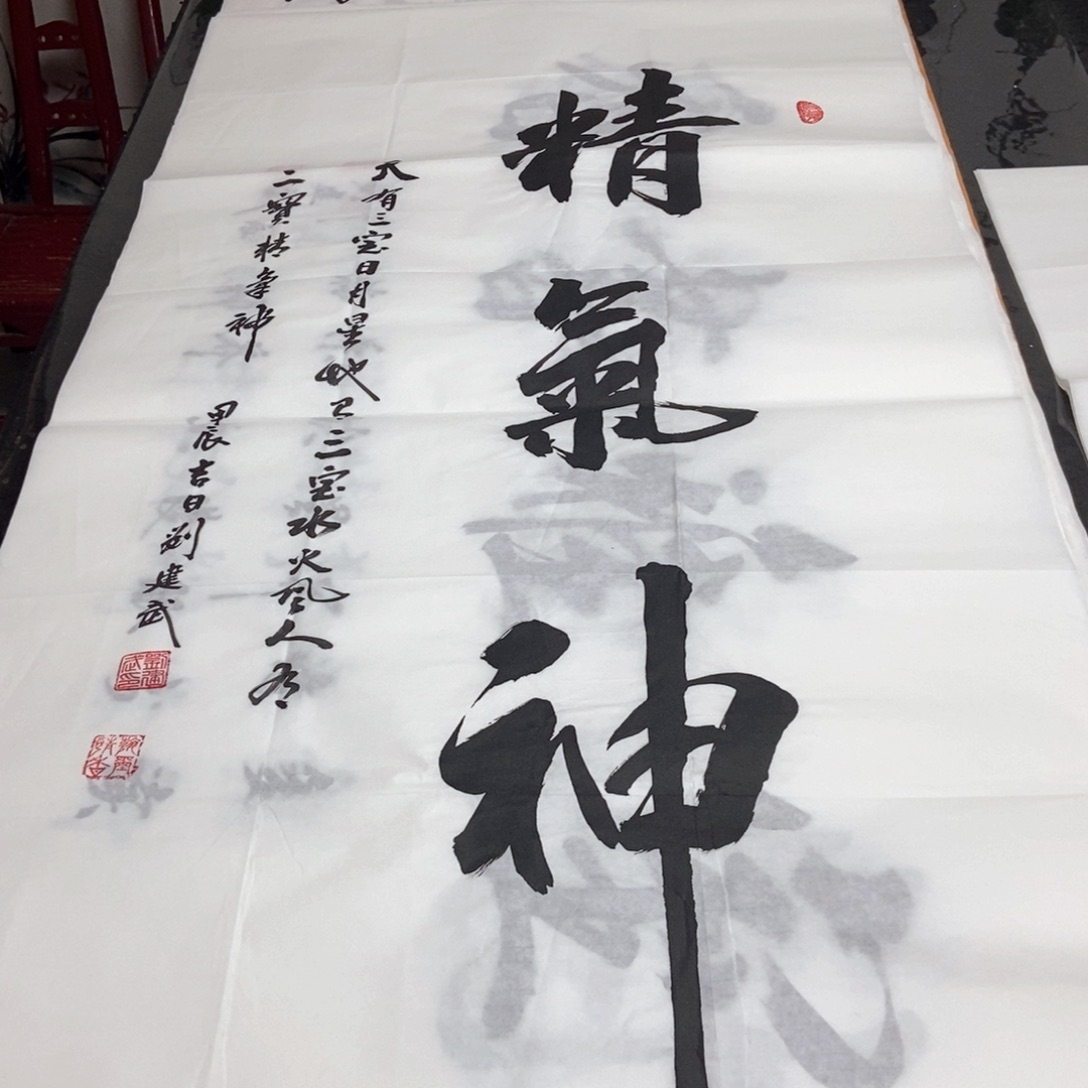 精氣神
天有三宝日月星地有三宝水火风人有
三寶精氣神
甲辰吉日劉建武
劉建武印